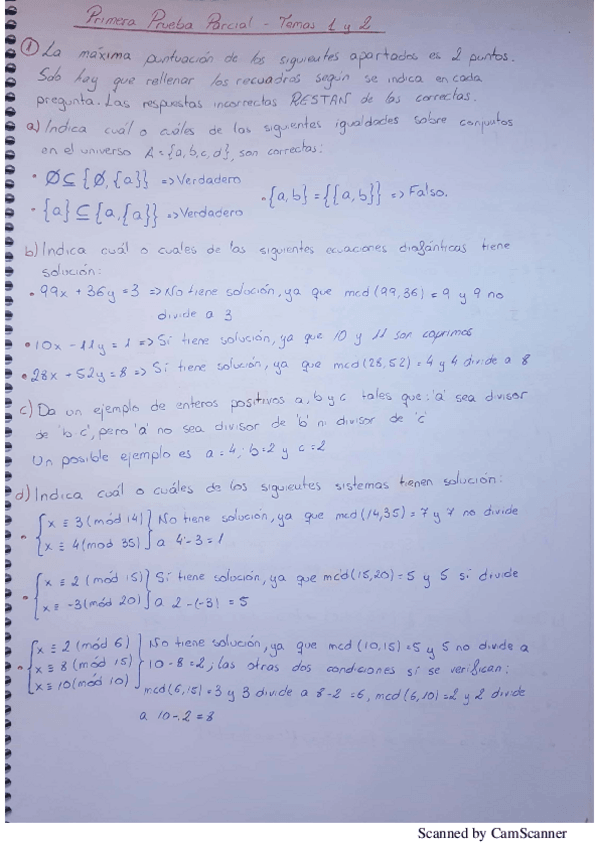 Primera Prueba Parcial - Temas 1 y 2
① La máxima puntuación de los siguientes apartados es 2 puntos.
Solo hay que rellenar los recuadros según se indica en cada
pregunta. Las respuestas incorrectas RESTAN de las correctas.
a) Indica cuál o cuáles de las siguientes igualdades sobre conjuntos
en el universo A = {a,b,c,d}, son correctas:
• Ø ⊆ {Ø, {a}} => Verdadero
• {a,b} = {{a,b}} => Falso.
• {a} ⊆ {a, {a}} => Verdadero
b) Indica cuál o cuales de las siguientes ecuaciones diofánticas tiene
solución:
• 99x + 36y = 3 => No tiene solución, ya que mcd (99,36) = 9 y 9 no
divide a 3
• 10x - 11y = 1 => Si tiene solución, ya que 10 y 11 son coprimos
• 28x + 52y = 8 => Si tiene solución, ya que mcd (28,52) = 4 y 4 divide a 8
c) Da un ejemplo de enteros positivos a, b y c tales que: 'a' sea divisor
de 'b c', pero 'a' no sea divisor de 'b' ni divisor de 'c'
Un posible ejemplo es a = 4; b = 2 y c = 2
d) Indica cuál o cuáles de los siguientes sistemas tienen solución:
• {x ≡ 3 (mód 14)} No tiene solución, ya que mcd (14,35) = 7 y 7 no divide
{x ≡ 4 (mod 35)} a 4-3 = 1
• {x ≡ 2 (mód 15)} Si tiene solución, ya que mcd (15,20) = 5 y 5 si divide
{x ≡ -3 (mód 20)} a 2-(-3) = 5
• {x ≡ 2 (mód 6) } No tiene solución, ya que mcd (10,15) = 5 y 5 no divide a
{x ≡ 8 (mód 15)} 10-8 = 2; las otras dos condiciones si se verifican:
{x ≡ 10 (mód 10)} mcd (6,15) = 3 y 3 divide a 8-2 = 6, mcd (6,10) = 2 y 2 divide
a 10-2 = 8
Scanned by CamScanner